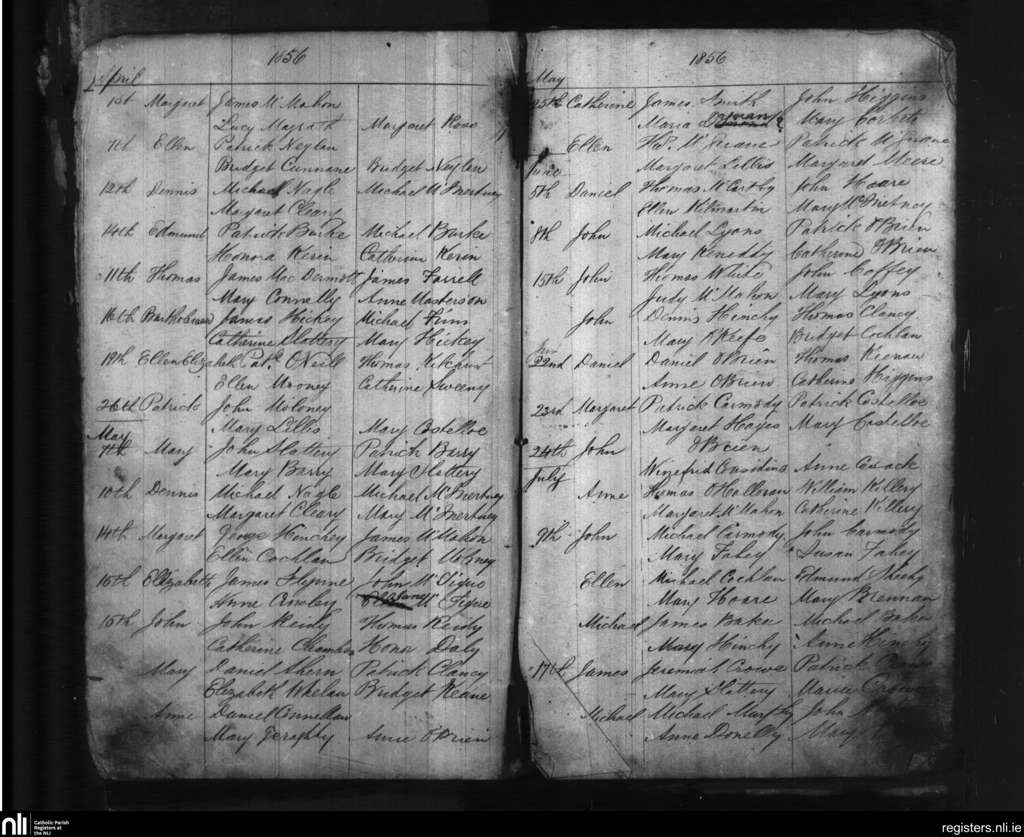 1856
April
1st Margaret James McMahon
Lucy Magrath Margaret Rose
7th Ellen Patrick Neylan
Bridget Cunnane Bridget Neylan
12th Dennis Michael Nagle Michael McInertney
Margaret Cleary
14th Edmund Patrick Burke Michael Burke
Honora Kerin Catherine Keron
11th Thomas James MacDermott James Farrell
Mary Connelly Anne Masterson
16th Bartholomew James Hickey Michael Finn
Catherine Slattery Mary Hickey
19th Ellen Elizabeth Patk. O'Neill Thomas
Ellen Mooney Catherine Sweeny
26th Patrick John Moloney
Mary Lillis Mary Costelloe
May
7th Mary John Slattery Patrick Barry
Mary Barry Mary Slattery
10th Dennis Michael Nagle Michael McInertney
Margaret Cleary Mary McInertney
14th Margaret George Hinchey James McMahon
Ellen Cochlan Bridget
15th Elizabeth James Flynne John McTigue
Anne Crowley McTigue
15th John John Reidy Thomas Reidy
Catherine Chambers Honor Daly
Mary Daniel Ahern Patrick Clancy
Elizabeth Whelan Bridget Keane
Anne Daniel Connellan
Mary Geraghty Anne O'Brien
1856
May
25th Catherine James Smith John Higgins
Maria Mary Corbett
Ellen McGuane Patrick McGuane
Margaret Lillis Margaret Meere
June
5th Daniel Thomas McCarthy John Hoare
Ellen Kilmartin Mary McInertney
8th John Michael Lyons Patrick O'Brien
Mary Keneddy Catherine O'Brien
15th John Thomas White John Coffey
Judy McMahon Mary Lyons
John Dennis Henchy Thomas Clancy
Mary O'Keefe Bridget Cochlan
22nd Daniel Daniel O'Brien Thomas Keenan
Anne O'Brien Catherine Higgins
23rd Margaret Patrick Carmody Patrick Costelloe
Margaret Hayes Mary Costelloe
24th John O'Brien
Winefrid Considine Anne Cusack
July
Anne Thomas O'Halloran William Killery
Margaret McMahon Catherine Killery
9th John Michael Carmody John Carmody
Mary Fahey Susan Fahey
Ellen Michael Cochlan Edmund Sheehy
Mary Hoare Mary Brennan
Michael James Baker Michael Baker
Mary Hinchy Anne Henchy
17th James Jeremiah Crowe Patrick
Mary Slattery Maria Crowe
Michael Michael Murphy John
Anne Donelly Mary
nli Catholic Parish
Registers at
the NLI
registers.nli.ie